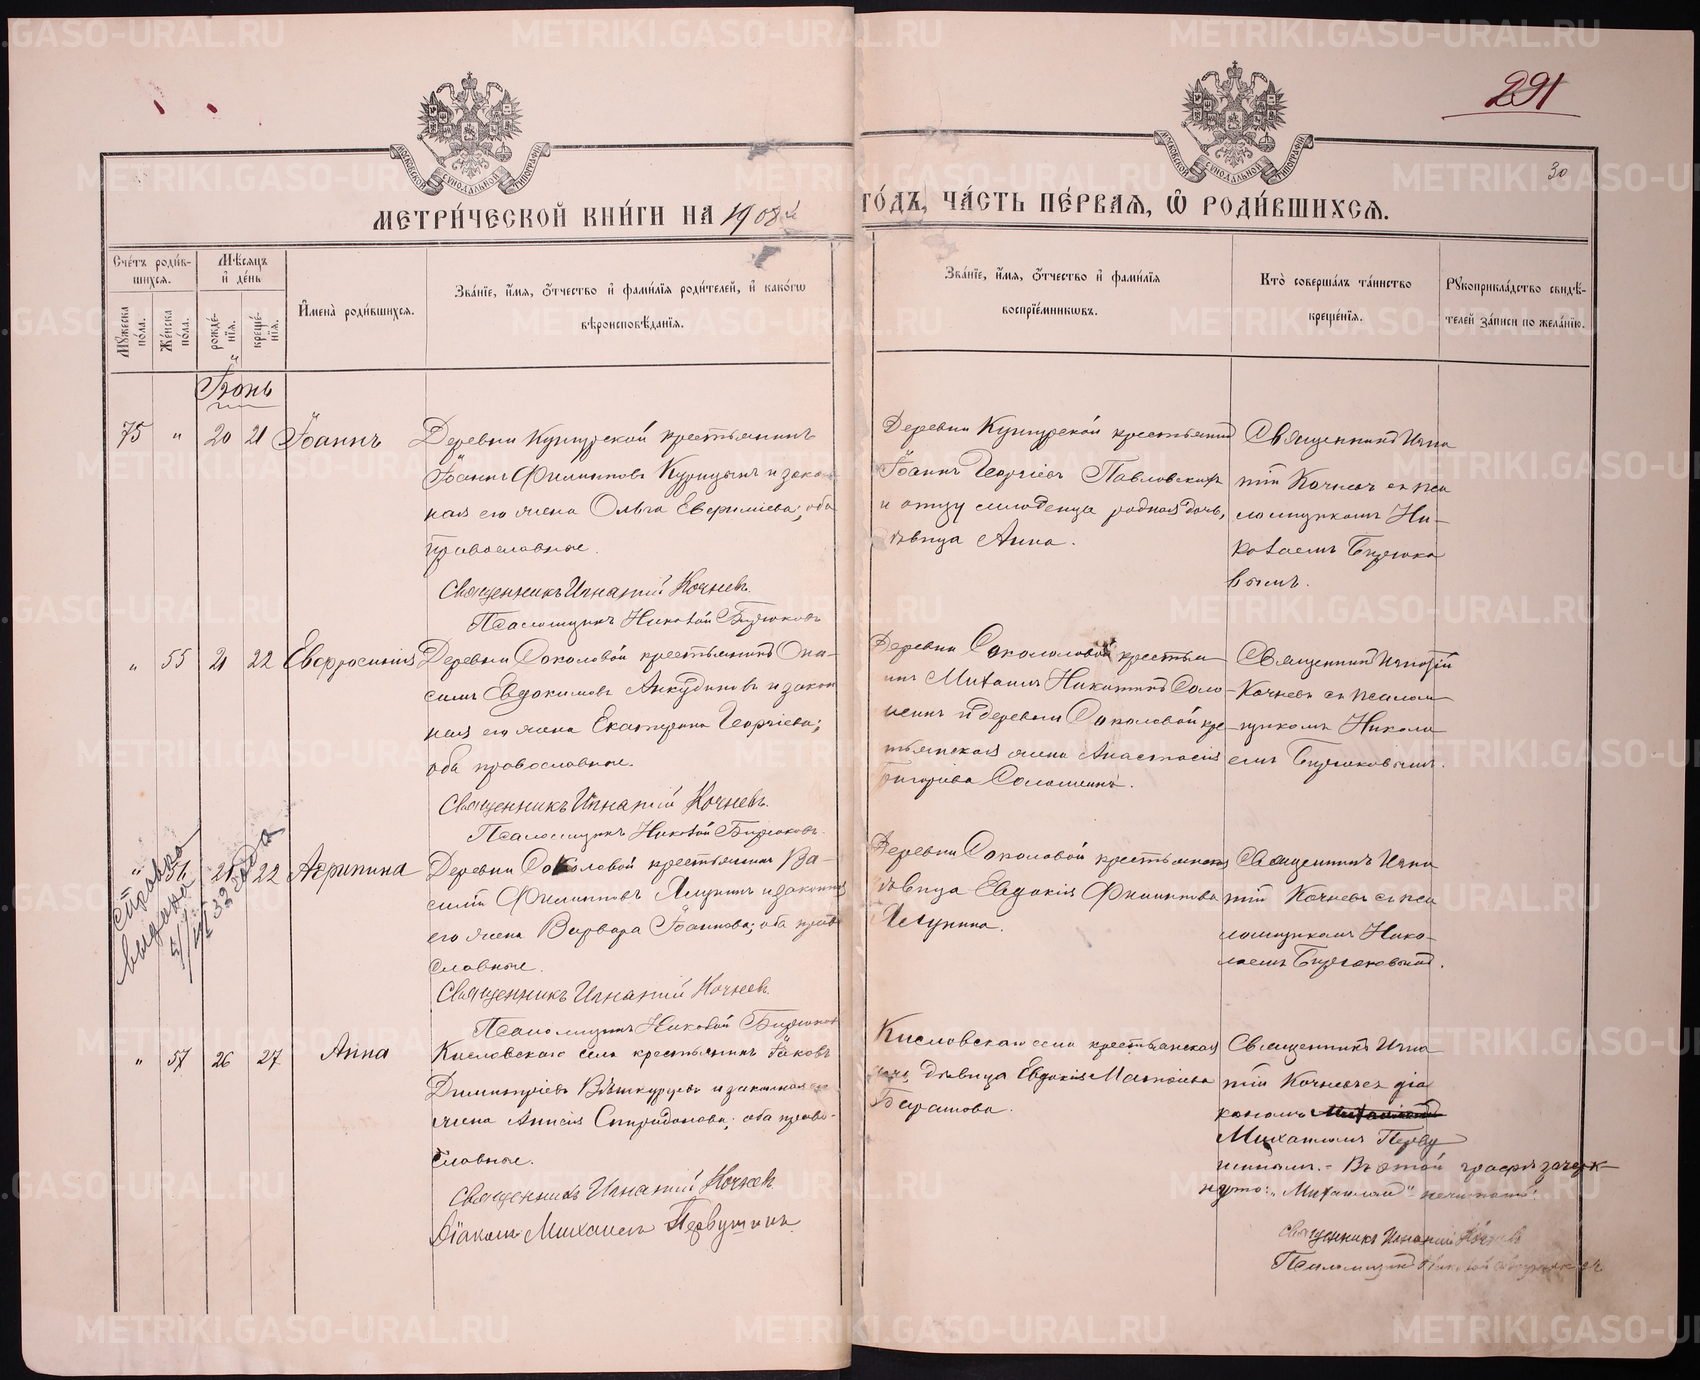 291
30
МОСКОВСКОЙ СѴНОДАЛЬНОЙ ТИПОГРАФІИ
МОСКОВСКОЙ СѴНОДАЛЬНОЙ ТИПОГРАФІИ
МЕТРИ́ЧЕСКОЙ КНИ́ГИ НА 1908й
ГО́ДЪ, ЧА́СТЬ ПЕ́РВАѦ, Ѽ РОДИ́ВШИХСѦ.
Сче́тъ роди́в-
шихсѧ.
Мꙋ́жеска по́ла.
Же́нска по́ла.
Мѣ́сѧцъ
и҆ де́нь
рожде́-нїѧ.
креще́-нїѧ.
И҆мена̀ роди́вшихсѧ.
Зва́нїе, и҆́мѧ, ѻ҆́тчество и҆ фами́лїѧ роди́телей, и҆ како́гѡ
вѣроисповѣ́данїѧ.
Зва́нїе, и҆́мѧ, ѻ҆́тчество и҆ фами́лїѧ
воспрїе́мникѡвъ.
Кто̀ соверша́лъ та́инство
креще́нїѧ.
Рꙋкоприкла́дство свидѣ́-
телей за́писи по жела́нїю.
Іюнь
75 " 20 21 Іоаннъ
Деревни Кунгурской крестьянинъ
Іоаннъ Филипповъ Курицынъ и закон
ная его жена Ольга Евфиміева; оба
православные.
Священникъ Игнатій Кочневъ.
Псаломщикъ Николай Бирюковъ
Деревни Кунгурской крестьянинъ
Іоаннъ Георгіевъ Павловскихъ
и отцу младенца родная дочь,
дѣвица Анна.
Священникъ Игна
тій Кочневъ съ пса
ломщикомъ Ни-
колаемъ Бирюко
вымъ.
" 55 21 22 Евфросинія
Деревни Соколовой крестьянинъ Она-
симъ Евдокимовъ Анкудиновъ и закон
ная его жена Екатерина Георгіева;
оба православные.
Священникъ Игнатій Кочневъ.
Псаломщикъ Николай Бирюковъ.
Деревни Соколовой крестья-
нинъ Михаилъ Никитинъ Соло-
меинъ и деревни Соколовой кре
стьянская жена Анастасія
Григорьева Соломеина.
Священникъ Игнатій
Кочневъ съ псалом
щикомъ Никола
емъ Бирюковымъ.
" 56 21 22 Агрипина
справка
выдана
33 года
Деревни Соколовой крестьянинъ Ва-
силій Филипповъ Ялунинъ и законная
его жена Варвара Іоаннова; оба право
славные.
Священникъ Игнатій Кочневъ.
Псаломщикъ Николай Бирюковъ
Деревни Соколовой крестьянская
дѣвица Евдокія Филиппова
Ялунина.
Священникъ Игна
тій Кочневъ съ пса
ломщикомъ Нико-
лаемъ Бирюковымъ.
" 57 26 27 Анна
Кисловскаго села крестьянинъ Іаковъ
Димитріевъ и законная его
жена Анисія Спиридонова; оба право-
славные.
Священникъ Игнатій Кочневъ
Діаконъ Михаилъ Первушинъ
Кисловскаго села крестьянская
дочь дѣвица Евдокія
Священникъ Игна
тій Кочневъ съ діа
кономъ Михаиломъ
Михаиломъ Перву
шинымъ. - Въ этой графѣ зачерк-
нуто: „Михаиломъ" не читать.
Священникъ Игнатій Кочневъ
Псаломщикъ Николай Бирюковъ
METRIKI.GASO-URAL.RU